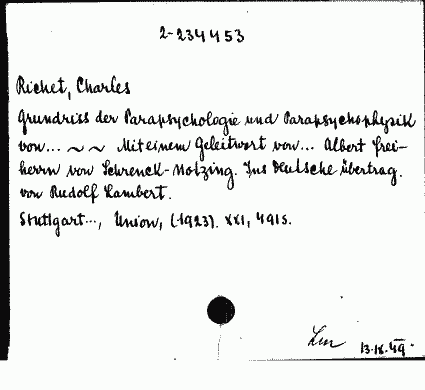 2-234453
Richet, Charles
Grundriss der Parapsychologie und Parapsychophysik
von... ~ ~ Mit einem Geleitwort von... Albert Frei-
herrn von Schrenck-Notzing. Ins Deutsche übertrag.
von Rudolf Lambert.
Stuttgart..., Union, (1923). XXI, 491 S.